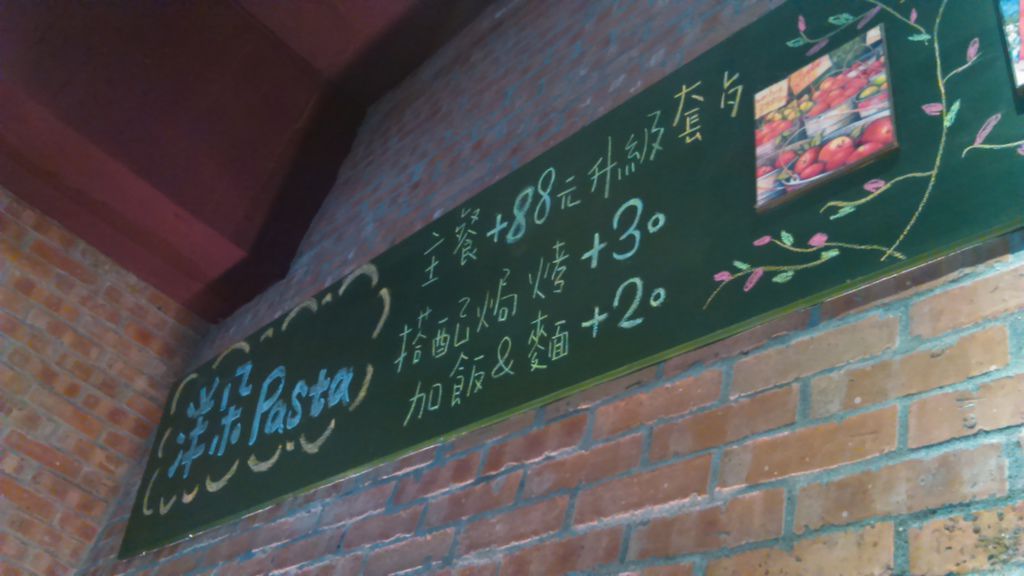 洋朵Pasta
主餐+88元升級套
搭配焗烤+30
加飯&麵+20